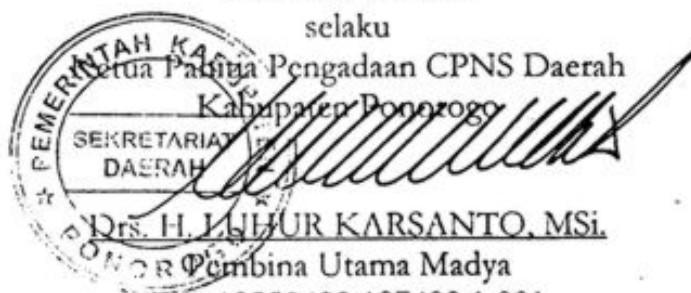 selaku
Ketua Panitia Pengadaan CPNS Daerah
Kabupaten Ponorogo
PEMERINTAH KABUPATEN
SEKRETARIAT
DAERAH
PONOROGO
Drs. H. LUHUR KARSANTO, MSi.
Pembina Utama Madya